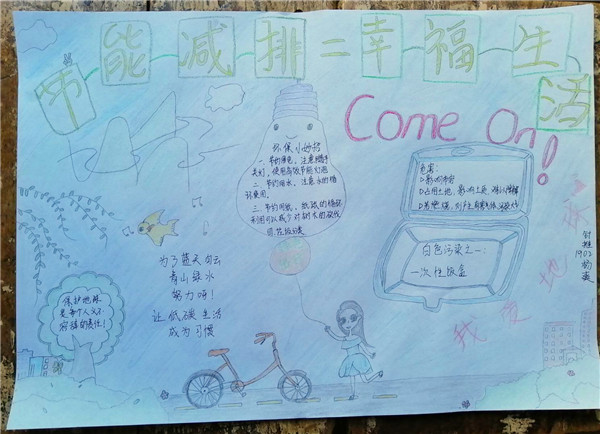 节能减排=幸福生活
Come On!
环保小妙招
一、节约用电，注意随手
关灯，使用高效节能灯泡
二、节约用水，注意水的循
环重用。
三、节约用纸，纸张的循环
利用可以减少对树木的砍伐
四、垃圾分类
危害：
占用土地，
白色污染之一：
一次性饭盒
为了蓝天白云
青山绿水
努力呀！
让低碳生活
成为习惯
保护地球
是每个人义不
容辞的责任！
我爱地球
1902杨爽